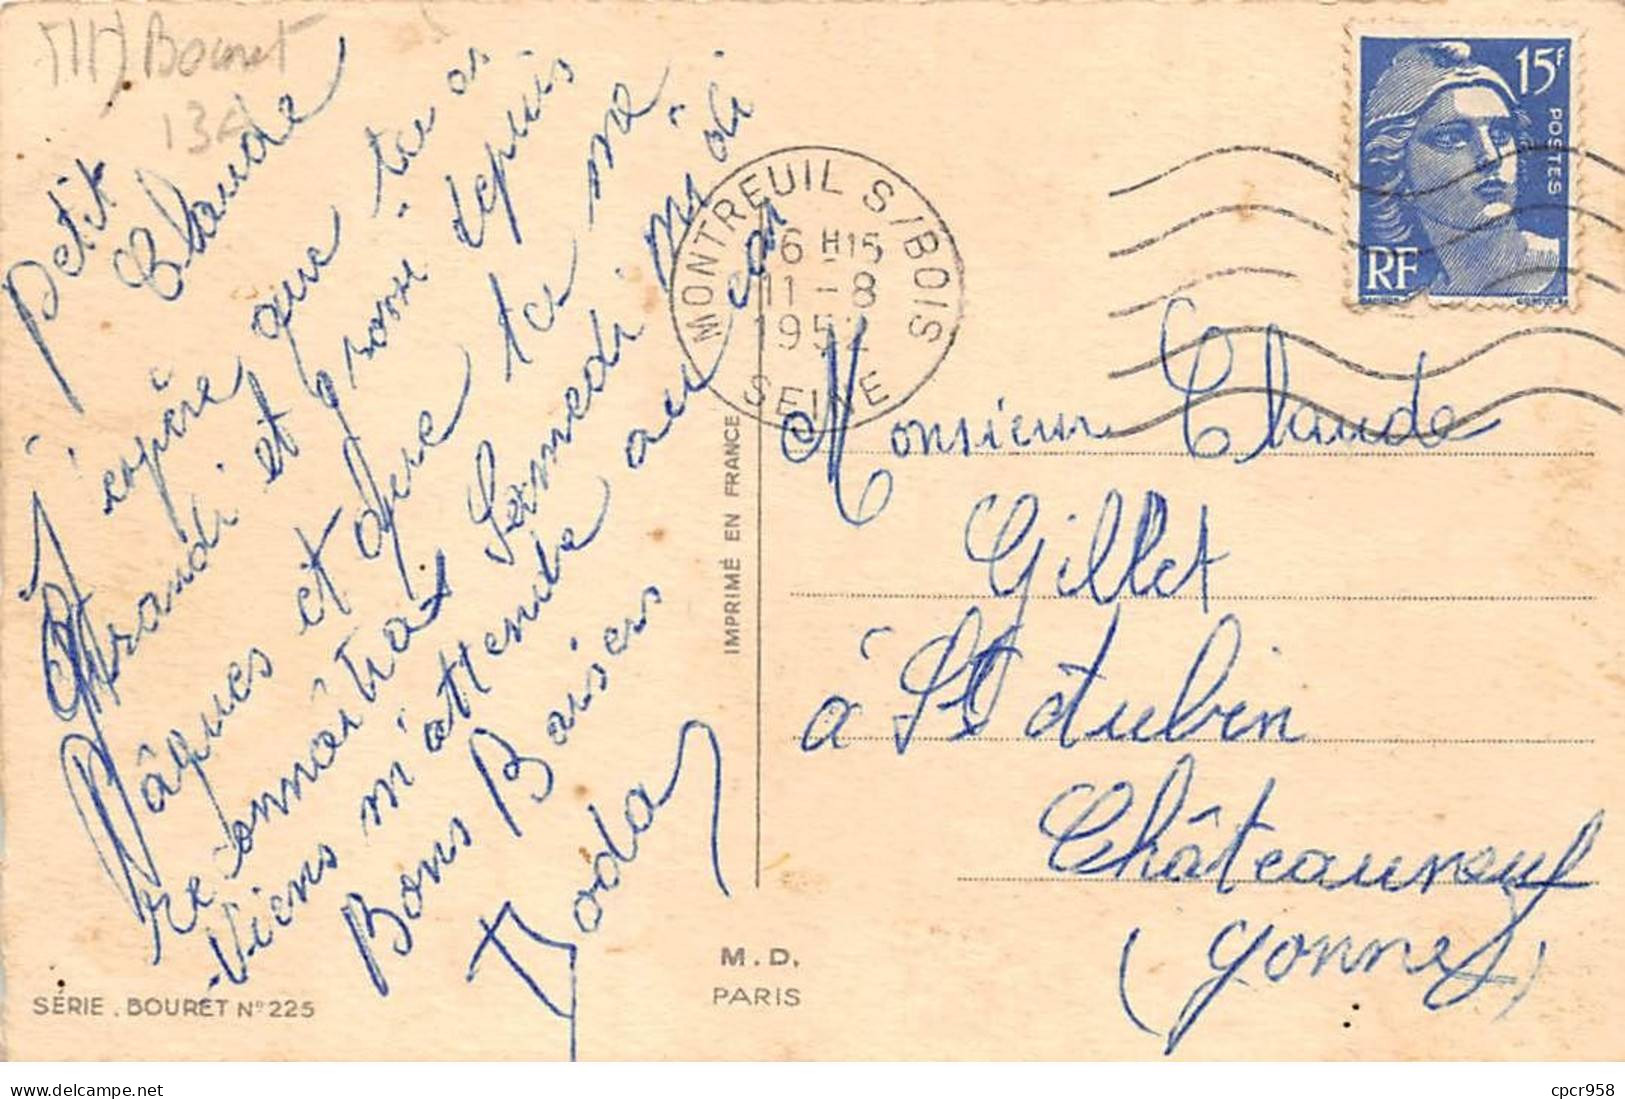 Bouret
134
Petit
Claude
J'espère que tu as
grandi et grossi depuis
Pâques et que tu me
reconnaîtras Samedi midi
Viens m'attendre au car
Bons Baisers
MONTREUIL S/BOIS
16 H 15
11 - 8
1952
SEINE
15F
POSTES
RF
Monsieur Claude
Gillet
à St Aubin
Châteauneuf
(Yonne)
IMPRIMÉ EN FRANCE
M. D.
PARIS
SÉRIE. BOURET N° 225
delcampe.net
cpcr958